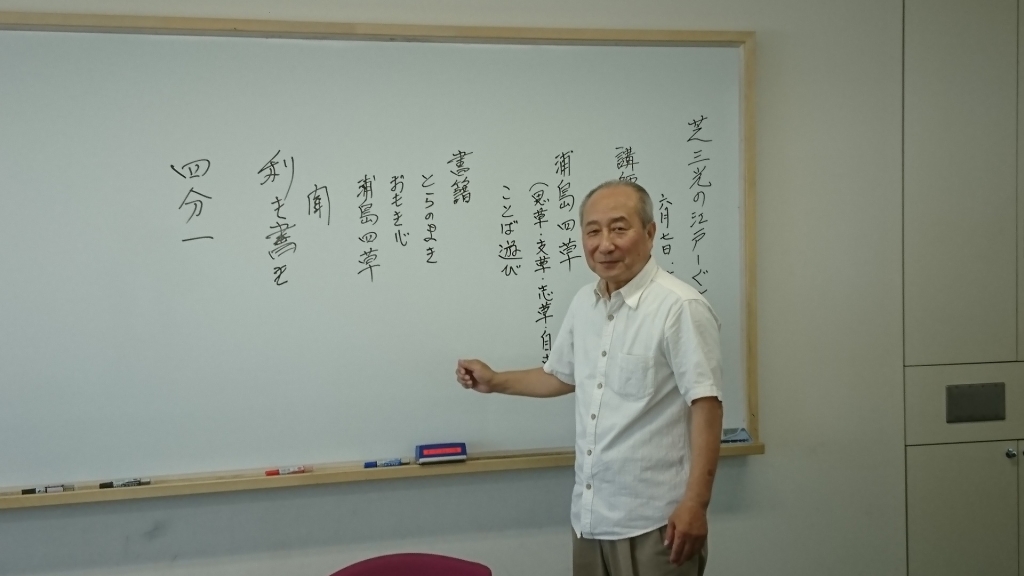 芝三光の江戸しぐ
六月七日・
講師
浦島四草
(思草・支草・志草・自
ことば遊び
書籍
とらのまき
おもき心
浦島四草
聞
利も書も
四分一